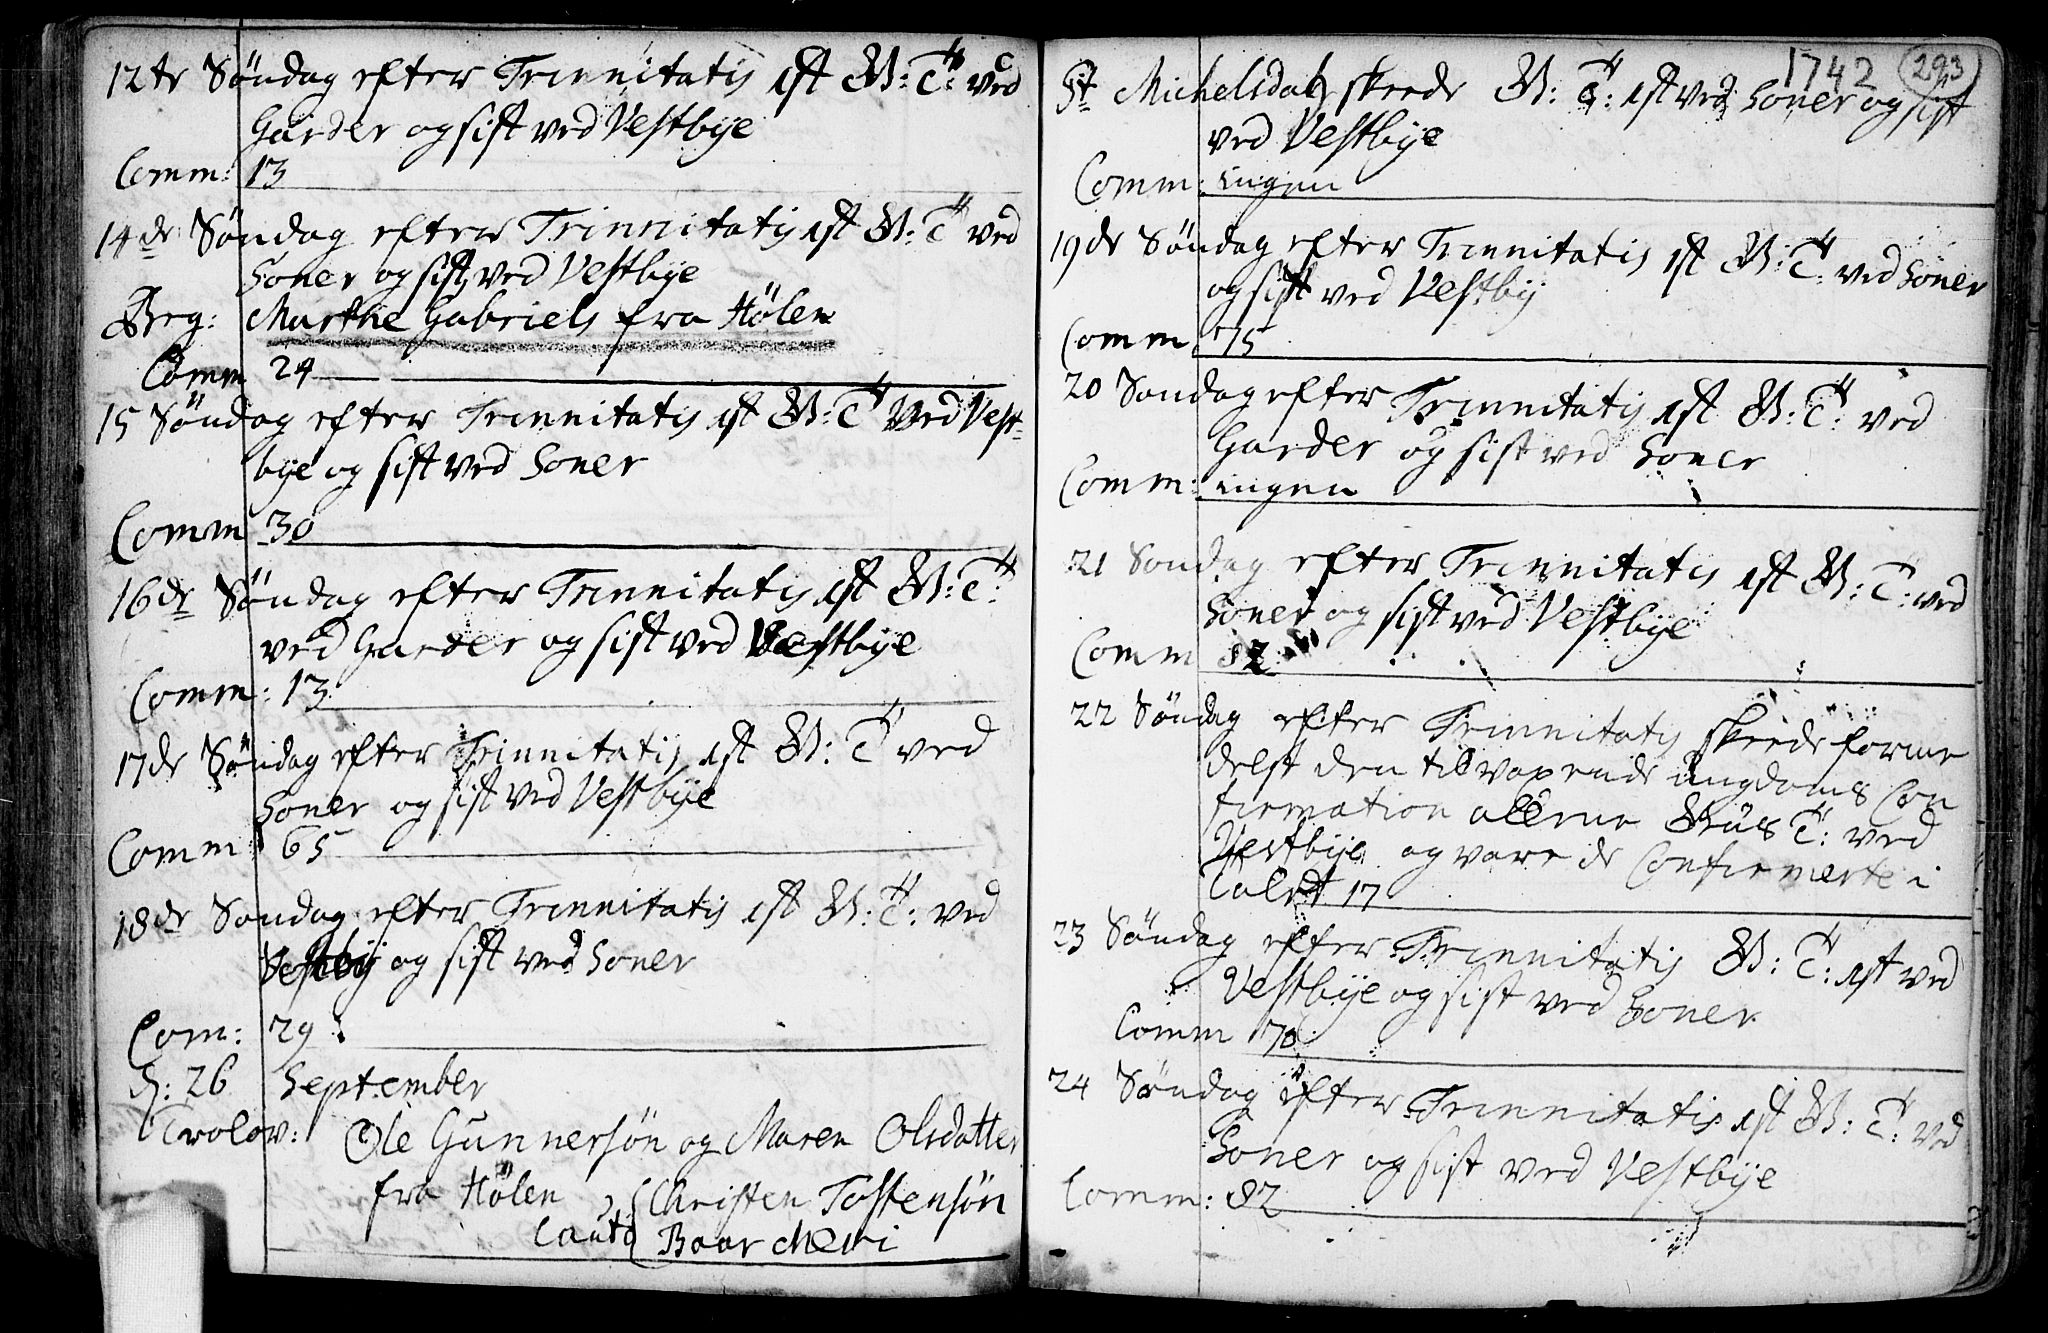 12te Søndag efter Trinnitatis 1st G: T: ved
Garder og sist ved Vestbÿe
Comm: 13
14de Søndag efter Trinnitatis 1st G: T: ved
Soner og sist ved Vestbÿe
Beg: Marthe Gabriels fra Hölen
Comm 24
15 Søndag efter Trinnitatis 1st G: T: Ved Vest-
bÿe og sist ved Soner
Comm 30
16de Søndag efter Trinnitatis 1st G: T:
ved Garder og sist ved Vestbÿe
Comm: 13
17de Søndag efter Trinnitatis 1st G: T: ved
Soner og sist ved Vestbÿe
Comm 65
18de Sondag efter Trinnitatis 1st G: T: ved
Vestbÿ og sist ved Soner
Com: 29
d: 26 September
Trolov: Ole Gunnersön og Maren Olsdatter
fra Hölen
Christen Tostensön
Cauto Baar
1742 293
St Michelsdag skeede G: T: 1st ved Soner og sist
ved Vestbÿe
Comm: ingen
19de Søndag efter Trinnitatis 1st G: T: ved Soner
og sist ved Vestbÿ
Comm 75
20 Søndag efter Trinnitatis 1st G: T: ved
Garder og sist ved Soner
Comm: ingen
21 Sondag efter Trinnitatis 1st G: T: ved
Soner og sist ved Vestbÿe
Comm 82
22 Søndag efter Trinnitatis skeede forme
delst den tilvoxende ungdoms Con
firmation allene Guds T: ved
Vestbÿe og vare de Confirmerte i
Talet 17
23 Søndag efter Trinnitatis G: T: 1st ved
Vestbÿe og sist ved Soner
Comm 70
24 Søndag efter Trinnitatis 1st G: T: ved
Soner og sist ved Vestbÿe
Comm: 82